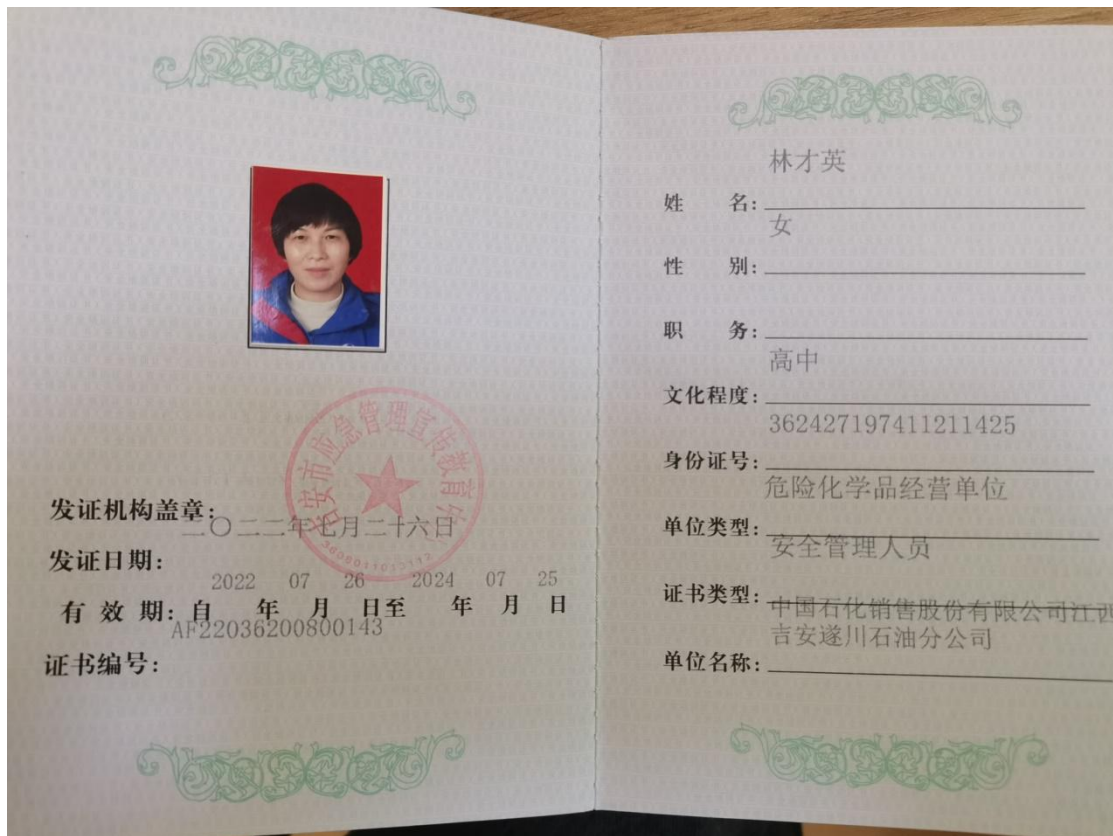 吉安市应急管理宣传教育
发证机构盖章:
二〇二二年七月二十六日
发证日期:
2022 07 26 2024 07 25
有 效 期: 自 年 月 日至 年 月 日
AF22036200800143
证书编号:
林才英
姓 名:
女
性 别:
职 务:
高中
文化程度:
362427197411211425
身份证号:
危险化学品经营单位
单位类型:
安全管理人员
证书类型:
中国石化销售股份有限公司江西
吉安遂川石油分公司
单位名称: